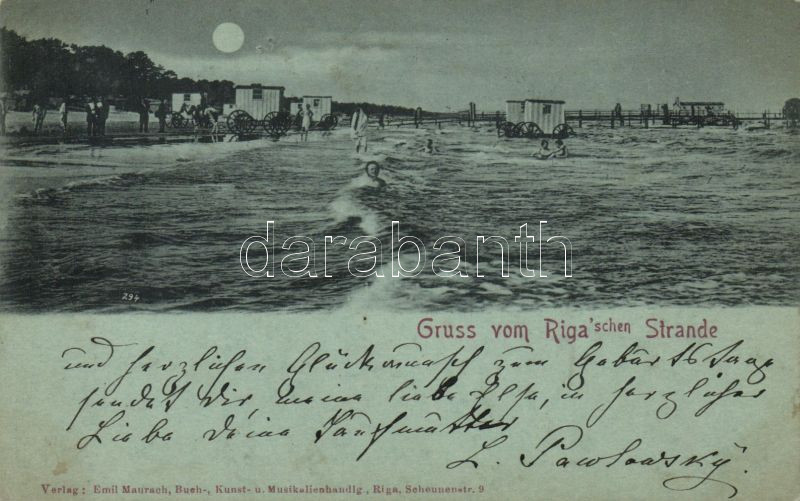 294
darabanth
Gruss vom Riga'schen Strande
und herzlichen Glückwunsch zum Geburtstage
sendet Dir, meine liebe Elsa, in herzlicher
Liebe deine Taufmutter
L. Pawlowsky.
Verlag: Emil Maurach, Buch-, Kunst- u. Musikalienhandlg., Riga, Scheunenstr. 9